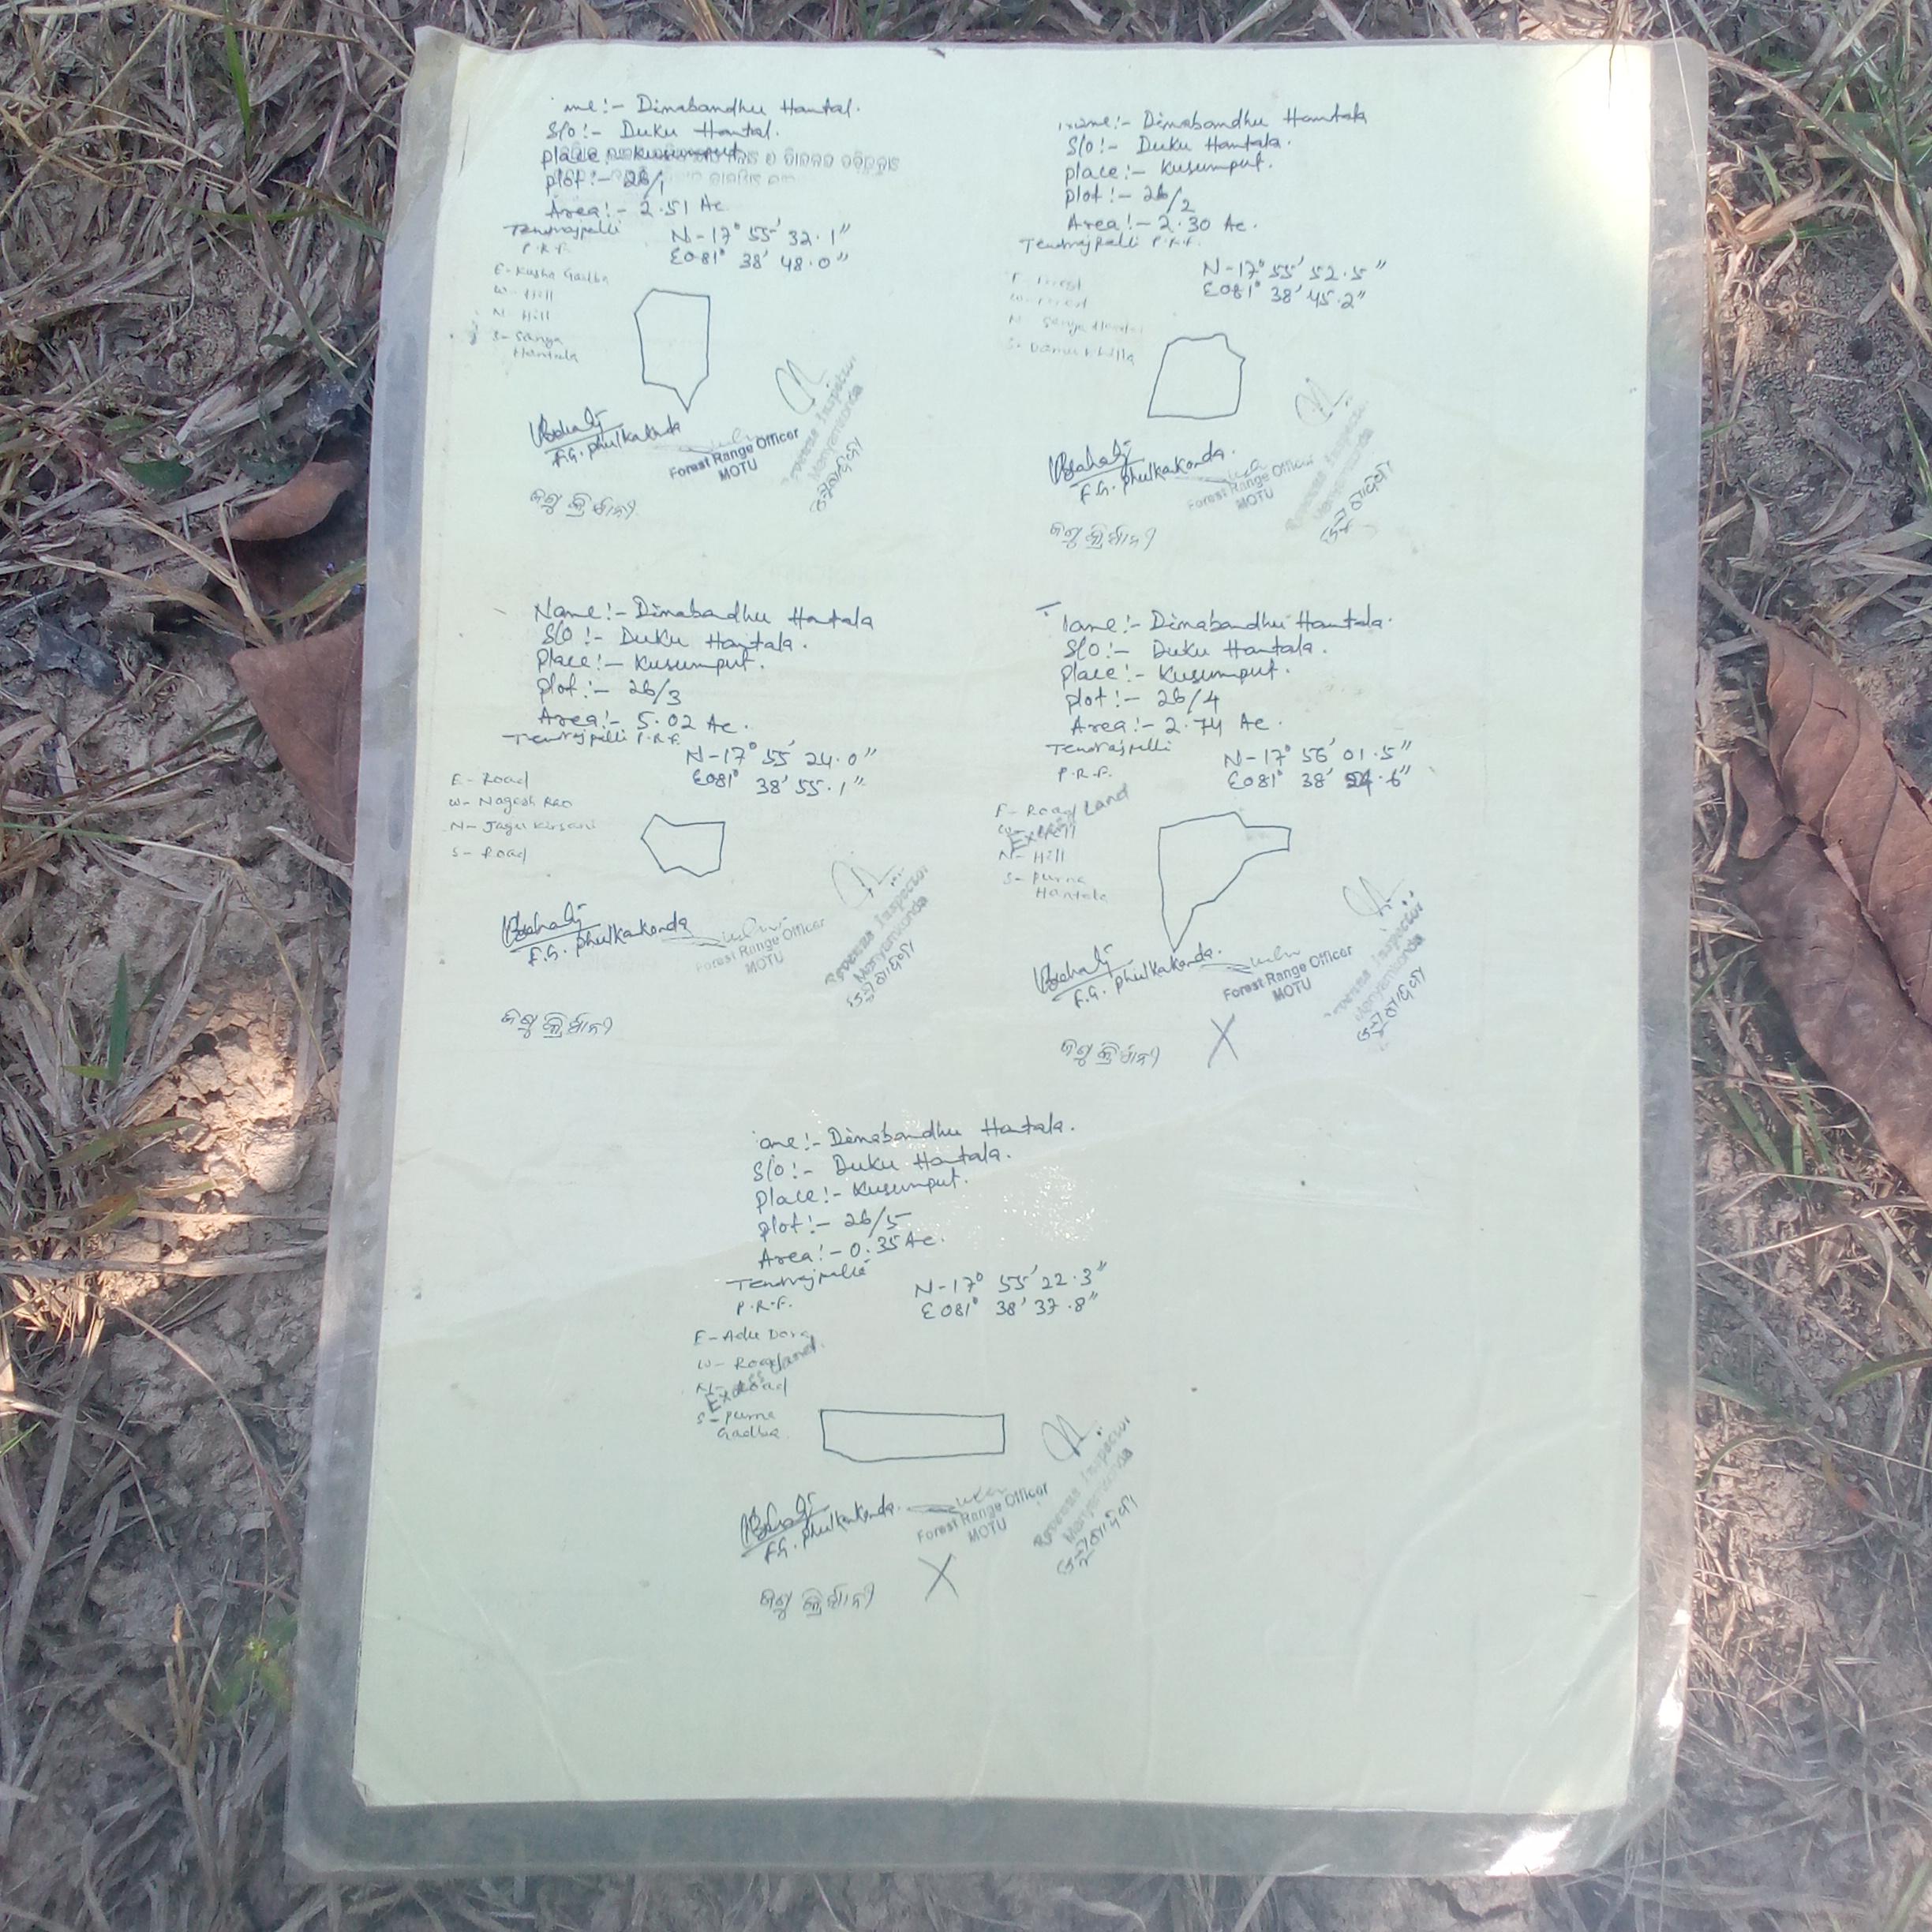 Dinabandhu Hantal.
S/o :- Duku Hantal.
place :- Kusumput
plot :- 26/1
Area :- 2.51 Ac.
Tendrajpalli
P.R.F.
N-17° 55' 32.1"
E081° 38' 48.0"
E- Kusha Gadba
W- Hill
N- Hill
S- Sanya
Hantala
F.G. Phulkakonda
Forest Range Officer
MOTU
Revenue Inspector
Manyamkonda
Name :- Dinabandhu Hantala
S/o :- Duku Hantala.
place :- Kusumput.
plot :- 26/2
Area :- 2.30 Ac.
Tendrajpalli P.R.F.
N-17° 55' 52.5"
E081° 38' 45.2"
N- Sanya Hantal
F.G. Phulkakonda.
Forest Range Officer
MOTU
Revenue Inspector
Manyamkonda
Name :- Dinabandhu Hantala
S/o :- Duku Hantala.
place :- Kusumput.
plot :- 26/3
Area :- 5.02 Ac.
Tendrajpalli P.R.F.
N-17° 55' 24.0"
E081° 38' 55.1"
E- Road
W- Nagesh Rao
N- Jagu Kirsani
S- Road
F.G. Phulkakonda
Forest Range Officer
MOTU
Revenue Inspector
Manyamkonda
Dinabandhu Hantala.
S/o :- Duku Hantala.
place :- Kusumput.
plot :- 26/4
Area :- 2.74 Ac.
Tendrajpalli
P.R.F.
N-17° 56' 01.5"
E081° 38' 24.6"
E- Road
Excess Land
W- Hill
N- Hill
S- Purna
Hantala
F.G. Phulkakonda.
Forest Range Officer
MOTU
Revenue Inspector
Manyamkonda
X
Dinabandhu Hantala.
S/o :- Duku Hantala.
place :- Kusumput.
plot :- 26/5
Area :- 0.35 Ac.
Tendrajpalli
P.R.F.
N-17° 55' 22.3"
E081° 38' 37.8"
E- Adu Dora
W- Road
Excess Land.
N- Road
S- Purna
Gadba
F.G. Phulkakonda.
Forest Range Officer
MOTU
Revenue Inspector
Manyamkonda
X